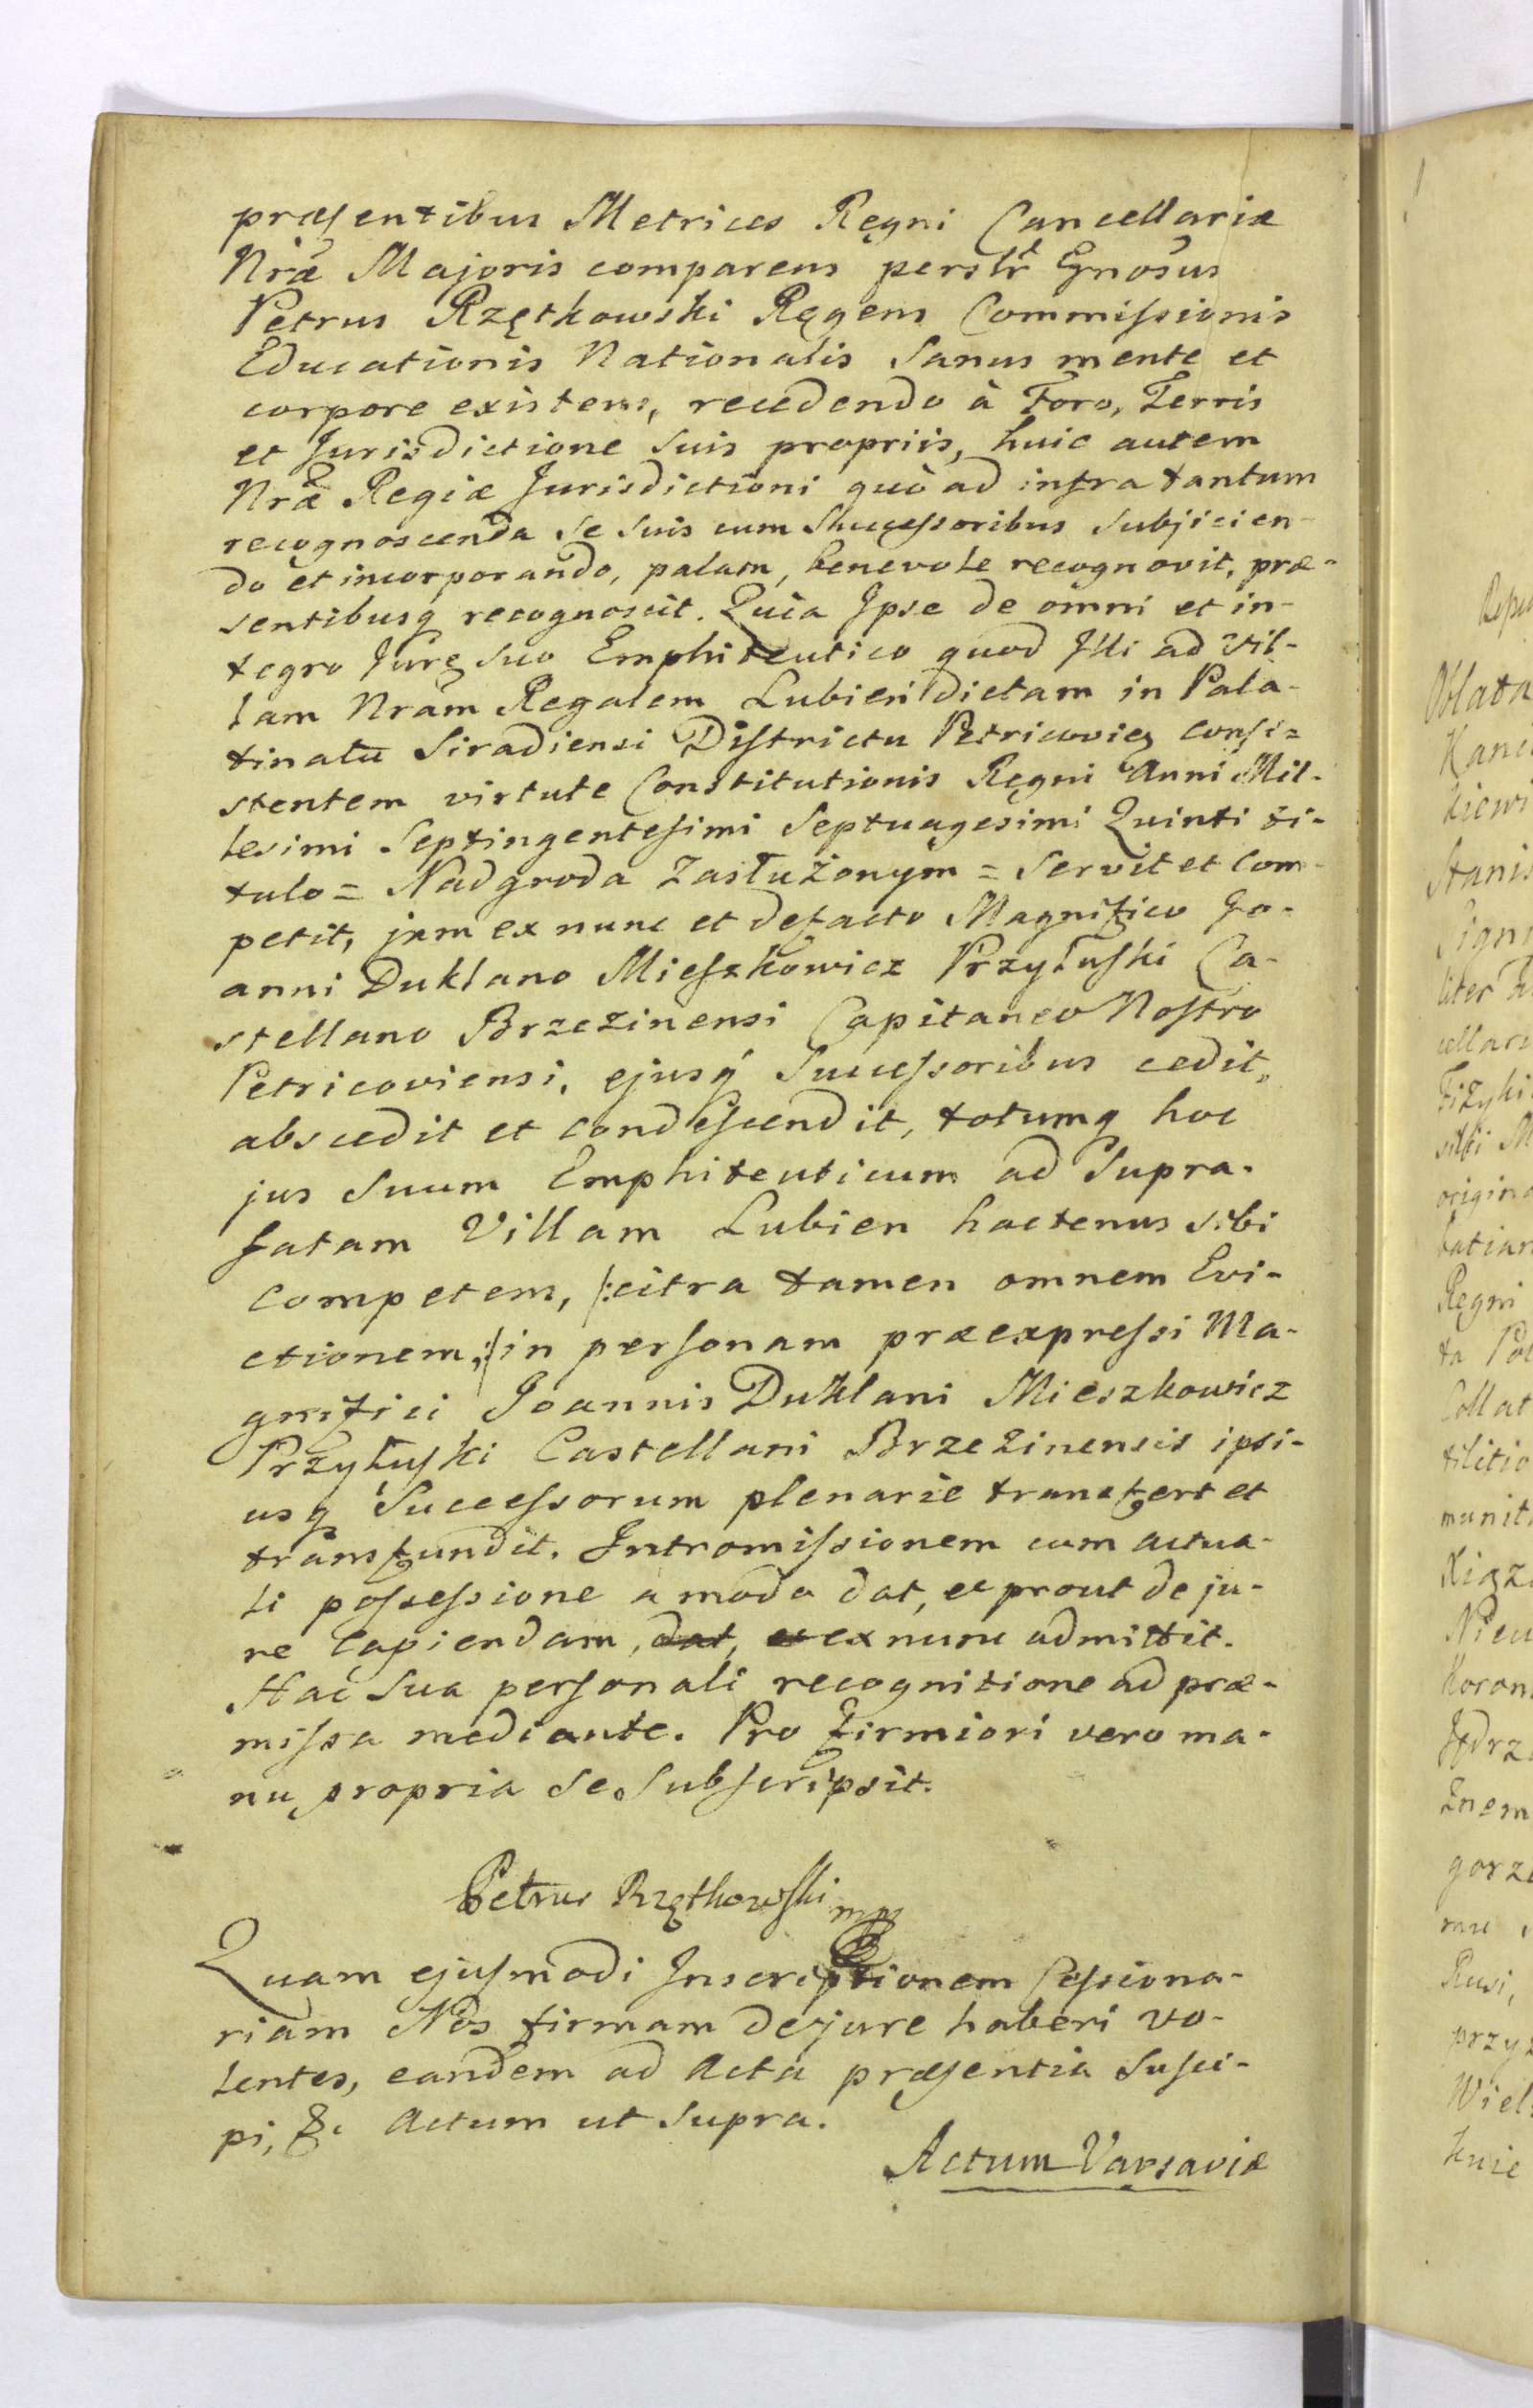 præsentibus Metrices Regni Cancellariæ
Nrǣ Majoris comparens persłr Gnosus
Petrus Rzętkowski Regens Commissionis
Educationis Nationalis Sanus mente et
corpore existens, recedendo à Foro, Terris
et Jurisdictione Suis propriis, huic autem
Nrǣ Regiæ Jurisdictioni quò ad infra tantum
recognoscenda Se Suis cum Successoribus Subjicien-
do et incorporando, palam, benevole recognovit, præ-
sentibusq recognoscit. Quia Ipse de omni et in-
tegro Jure suo Emphiteutico quod Illi ad Vil-
lam Nram Regalem Lubień dictam in Pala-
tinatu Siradiensi Districtu Petricovien consi=
stentem virtute Constitutionis Regni Anni Mil-
lesimi Septingentesimi Septuagesimi Quinti ti-
tulo = Nadgroda Zasłużonym = Servit et Com-
petit, jam ex nunc et defacto Magnifico Jo-
anni Duklano Mieszkowicz Przyłuski Ca-
stellano Brzezinensi Capitaneo Nostro
Petricoviensi, ejusq Successoribus cedit,
abscedit et condescendit, totumq hoc
jus Suum Emphiteuticum ad Supra-
fatam Villam Lubien hactenus sibi
competens, /:citra tamen omnem Evi-
ctionem,:/ in personam præexpressi Ma-
gnifici Joannis Duklani Mieszkowicz
Przyłuski Castellani Brzezinensis ipsi-
usq Successorum plenarie transfert et
transfundit. Intromissionem cum actua-
li possessione a modo dat, et prout de ju-
re Capiendam, dat, et ex nunc admittit.
Hac Sua personali recognitione ad præ-
missa mediante. Pro firmiori vero ma-
nu propria se subscripsit.
Petrus Rzętkowski mp
Quam ejusmodi Inscriptionem Cessiona-
riam Nos firmam dejure haberi vo-
lentes, eandem ad Acta præsentia Susci-
pi, &c Actum ut Supra.
Actum Varsaviæ
Oblata
Stanis
Regni
Collat